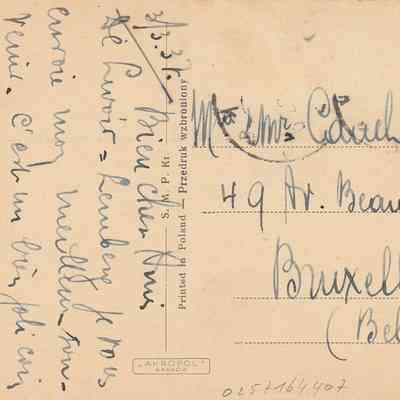 3/3.37.
Bien cher Ami
de Lwów = Lemberg je vous
envoie mon meilleur sou-
venir. C'est un très joli coin
S. M. P. Kr.
Printed in Poland — Przedruk wzbroniony
"AKROPOL"
KRAKÓW
Mr & Mme
49 Av. Beau
Bruxell
(Bel
0257164407